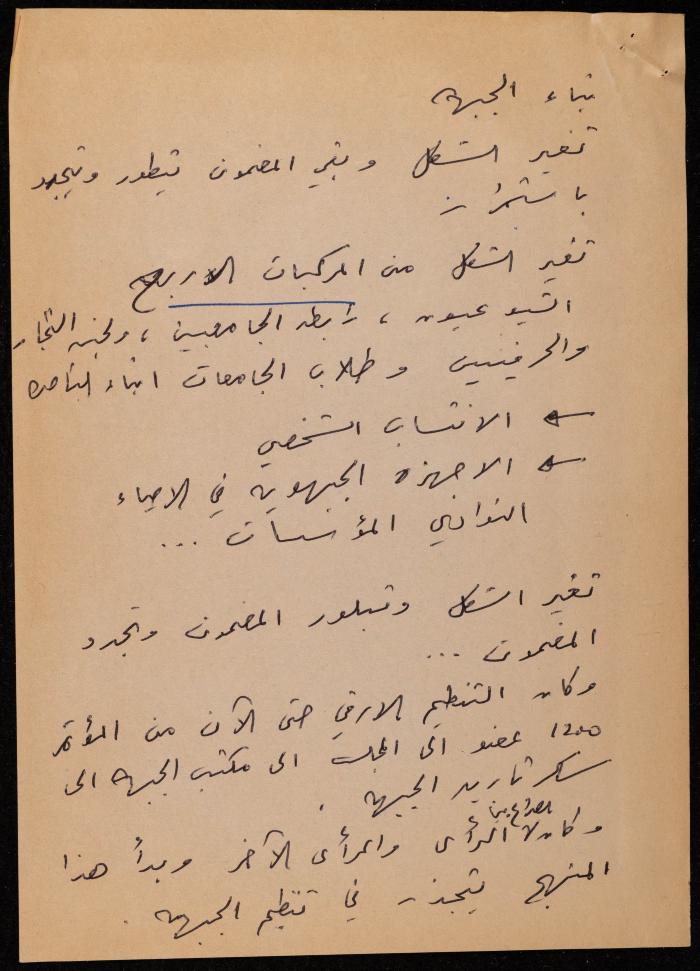 بناء الجبهة
تغير الشكل وبقي المضمون يتطور ويتجدد
باستمرار
تغير الشكل من المركبات الاربع
الشيوعيون ، رابطة الجامعيين ، ولجنة التجار
والحرفيين وطلاب الجامعات ابناء الناصرة
← الانتساب الشخصي
← الاجهزه الجبهويه في الاحياء
النوادي المؤسسات ...
تغير الشكل وتبلور المضمون وتجدد
المضمون ...
وكان التنظيم الارقى حتى الآن من المؤتمر
1200 عضو الى المجلس الى مكتب الجبهة الى
سكرتارية الجبهه .
وكان الصراع بين الرأي والرأي الآخر وبدأ هذا
المنهج يتجذر في تنظيم الجبهه .